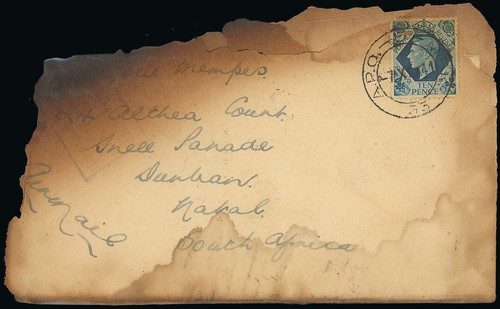 Mempes.
4 Althea Court
Snell Parade
Durban.
Natal.
South Africa
Airmail
A.P.O.
TEN PENCE